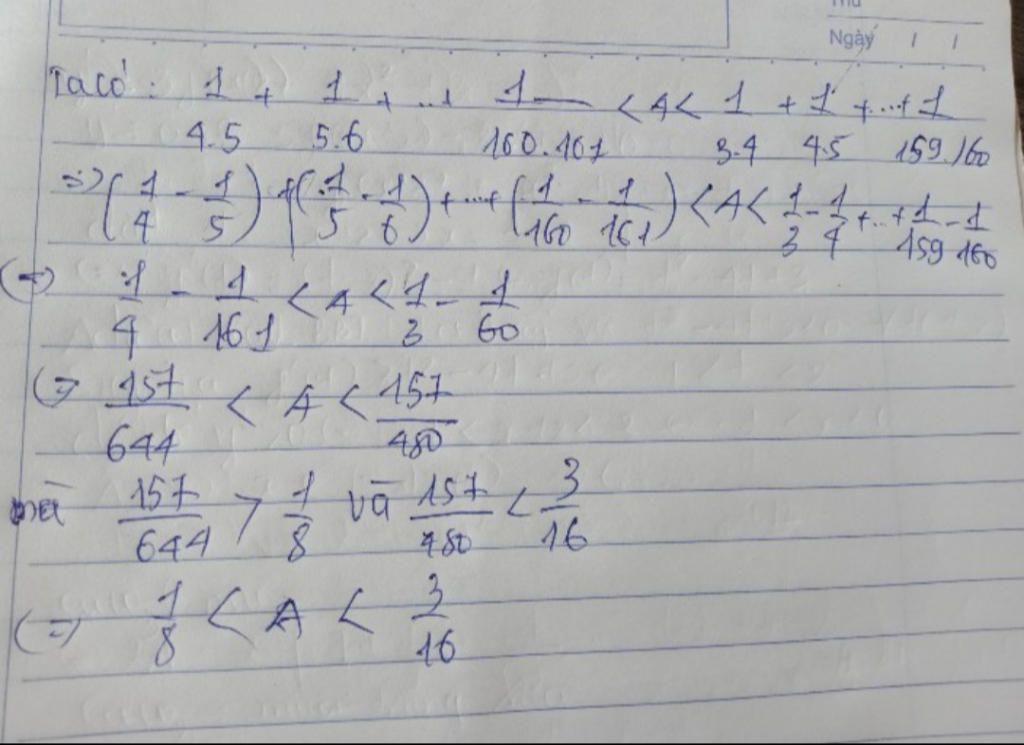 Thứ
Ngày / /
Ta có : 1/4.5 + 1/5.6 + ...+ 1/160.161 < A < 1/3.4 + 1/4.5 +...+ 1/159.160
=> (1/4 - 1/5) + (1/5 - 1/6) + ...+ (1/160 - 1/161) < A < 1/3 - 1/4 +...+ 1/159 - 1/160
(=) 1/4 - 1/161 < A < 1/3 - 1/60
(=) 157/644 < A < 157/480
mà 157/644 > 1/8 và 157/480 < 3/16
(=) 1/8 < A < 3/16